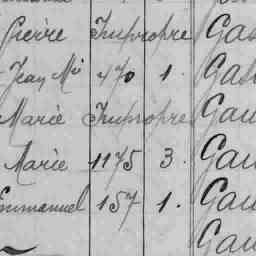 Pierre Impropre Gas
Jean Mie 470 1. Gas
Marie Impropre Gau
Marie 1175 3. Gau
Emmanuel 157 1. Gau
Gau